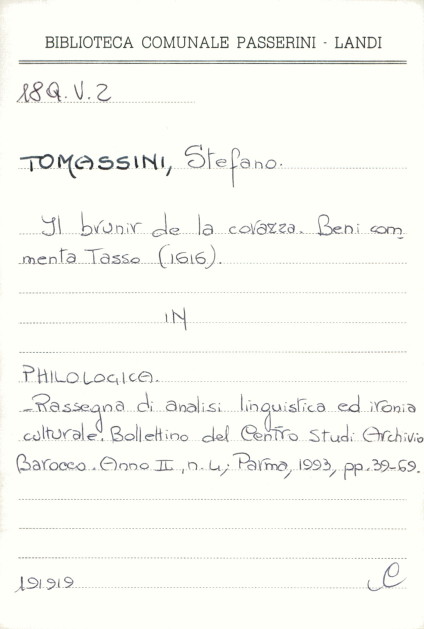 BIBLIOTECA COMUNALE PASSERINI - LANDI
18Q.V.2
TOMASSINI, Stefano.
Il brunir de la corazza. Beni com-
menta Tasso (1616).
IN
PHILOLOGICA.
-Rassegna di analisi linguistica ed ironia
culturale. Bollettino del Centro Studi Archivio
Barocco. Anno II, n. 4; Parma, 1993, pp. 39-69.
191919
C